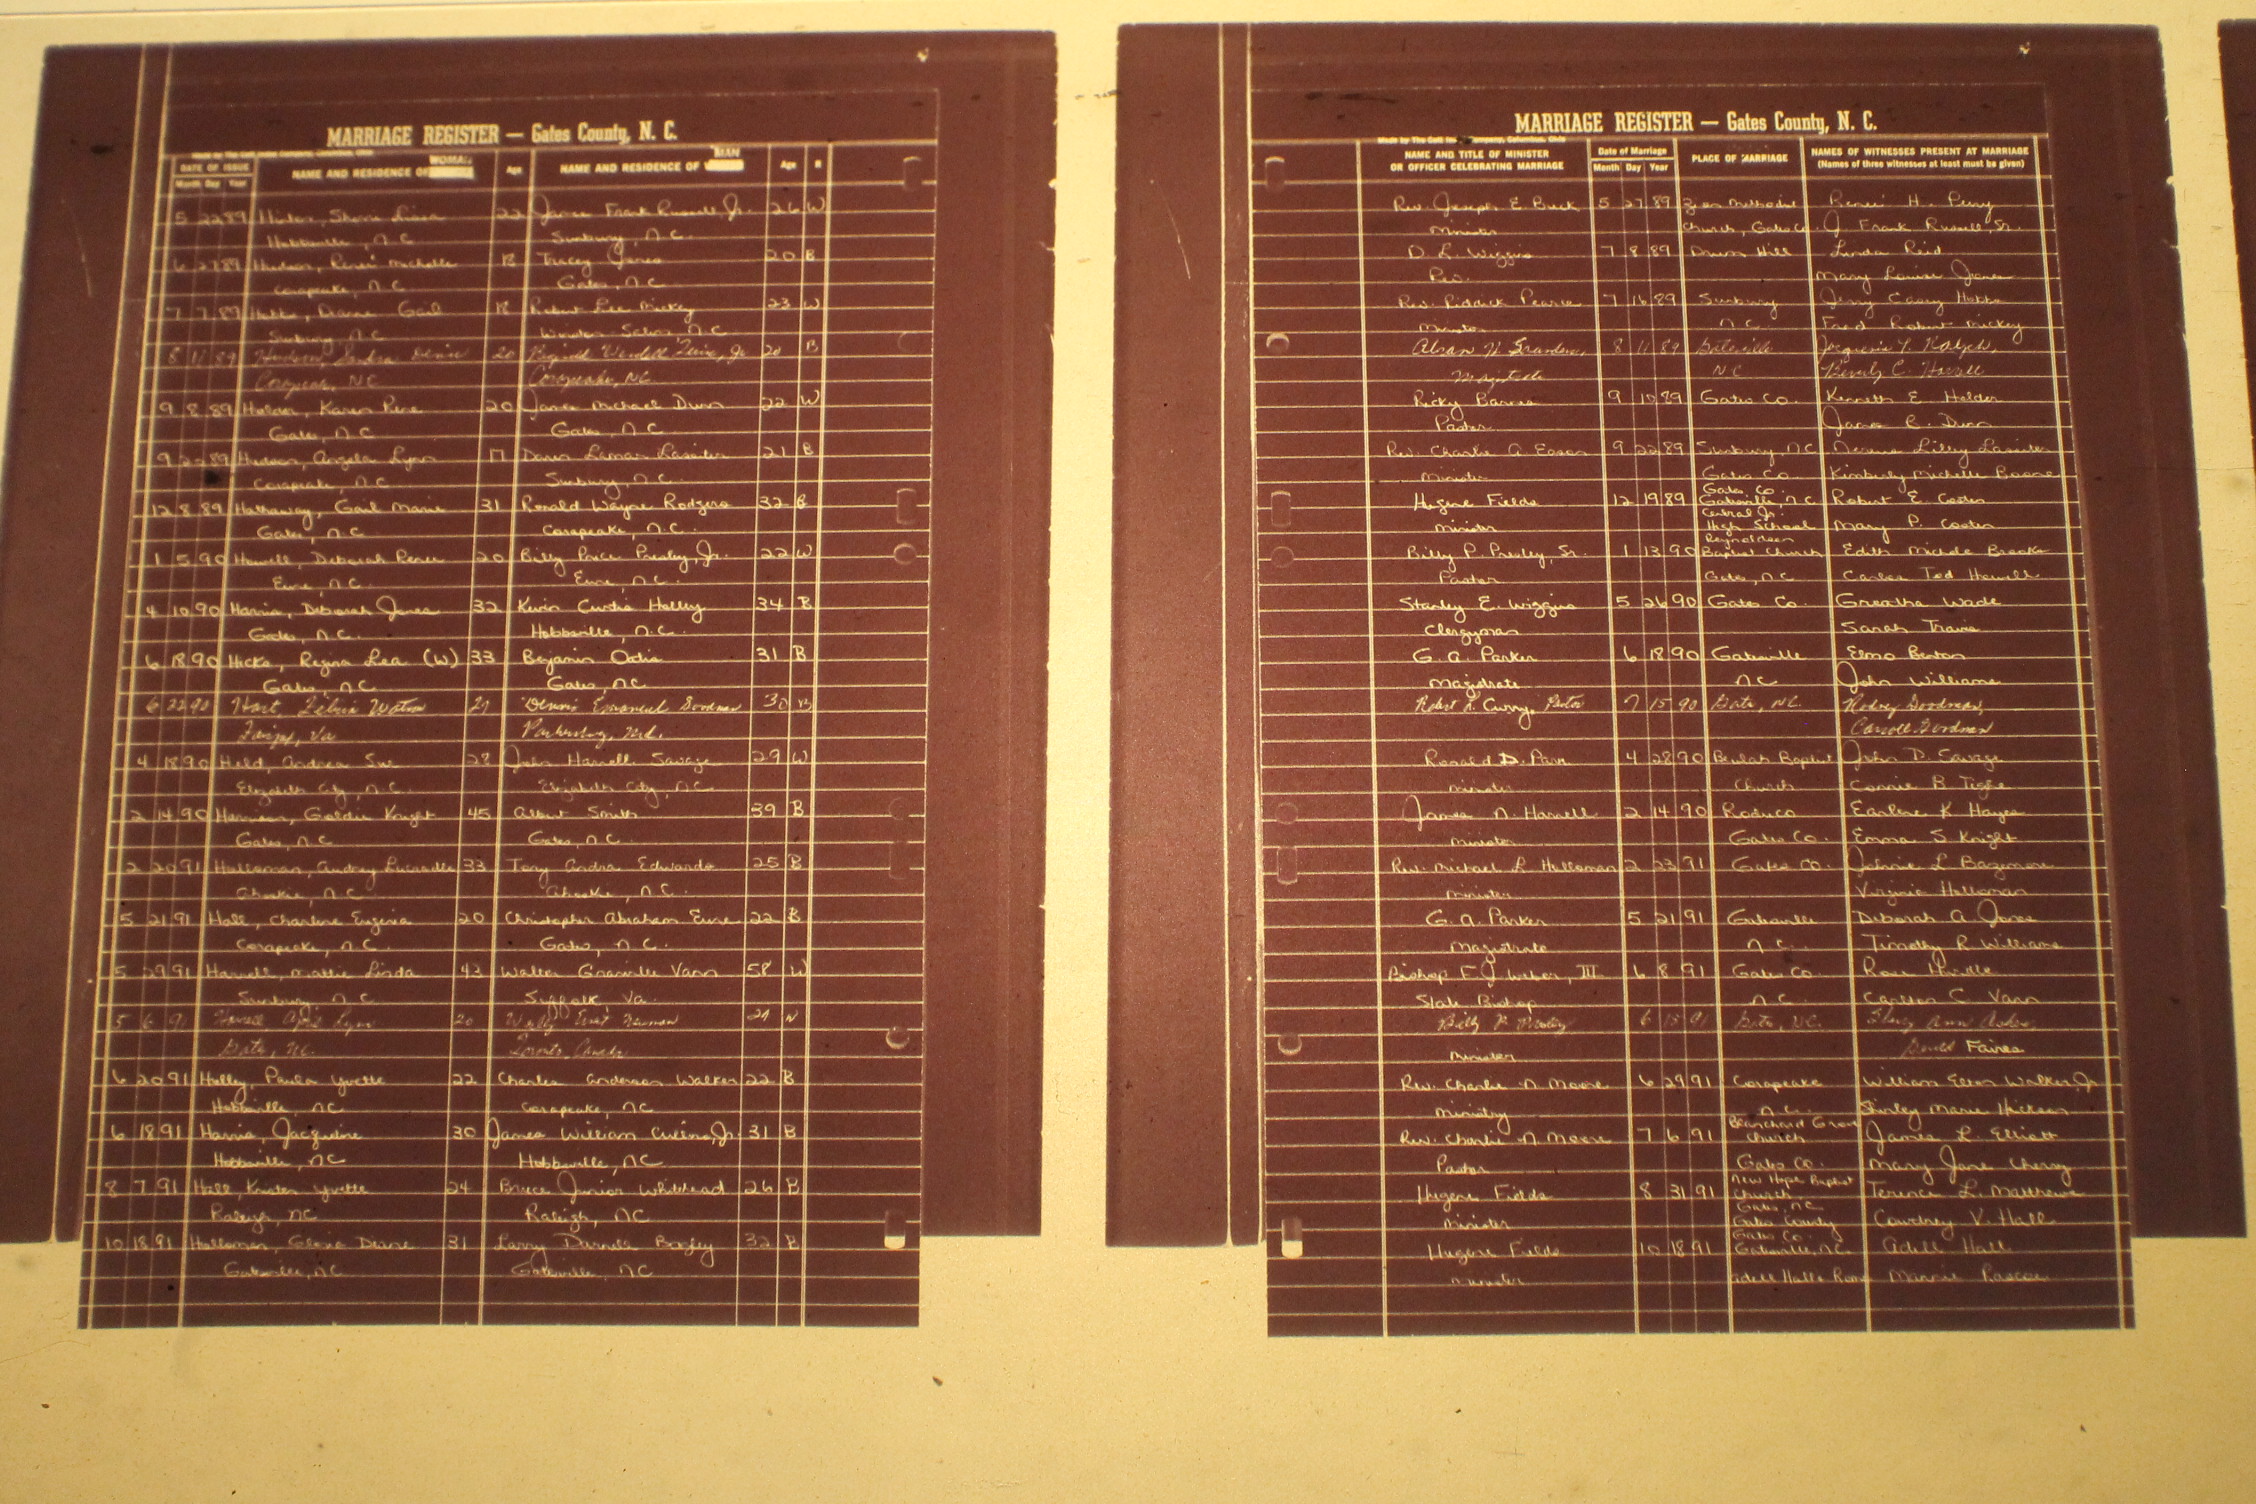 MARRIAGE REGISTER — Gates County, N. C.
DATE OF ISSUE
Month Day Year
NAME AND RESIDENCE OF WOMAN
Age
NAME AND RESIDENCE OF MAN
Age
R
5 22 89 22 James Frank Russell, Jr. 26 W
Hobbsville, N.C. Sunbury, N.C.
6 27 89 Hudson, Reneé Michelle 18 Tracey Jones 20 B
Corapeake, N.C. Gates, N.C.
7 7 89 Hobbs, Gail 18 Robert Lee Mickey 23 W
Sunbury, N.C. Winston Salem N.C.
8 11 89 Hudson, Sandra Denise 20 Reginald Wendell Jr 20 B
Corapeake, NC Corapeake, NC
9 8 89 Holder, Karen Rene 20 James Michael Dunn 22 W
Gates, N.C Gates, N.C
9 89 Hudson, Angela Lynn 17 Lamar Lassiter 21 B
Corapeake, N.C. Sunbury, N.C.
12 8 89 Hathaway, Gail Marie 31 Ronald Wayne Rodgers 32 B
Gates, N.C. Corapeake, N.C.
1 5 90 Howell, Deborah Renee 20 Billy Price Presley, Jr. 22 W
Eure, N.C. Eure, N.C.
4 10 90 Harris, Deborah Jones 32 Kevin Curtis Holley 34 B
Gates, N.C. Hobbsville, N.C.
6 18 90 Hicks, Regina Lea (W) 33 Benjamin Odis 31 B
Gates, N.C. Gates, NC
6 22 90 Hart, Watson Dennis Emanuel Goodman 30 B
Va Md.
4 18 90 Held, Andrea Sue John Harrell Savage 29 W
Elizabeth City, N.C. Elizabeth City, N.C.
2 14 90 Goldie Knight 45 Albert Smith 39 B
Gates, N.C Gates, N.C.
2 20 91 Holloman, Audrey 33 Tony Andra Edwards 25 B
Ahoskie, N.C Ahoskie, N.C.
5 21 91 Hall, Charlene Eugenia 20 Christopher Abraham Eure 22 B
Corapeake, N.C. Gates, N.C.
5 29 91 Harrell, Mattie Linda 43 Walter Granville Vann 58 W
Sunbury, N.C Suffolk, Va.
5 6 91 Howell, April Lynn 20
Gates, NC. Toronto, Canada
6 20 91 Holley, Paula Yvette 22 Charles Anderson Walker 22 B
Hobbsville, NC Corapeake, NC
6 18 91 Harris, Jacqueline 30 James William Jr. 31 B
Hobbsville, NC Hobbsville, NC
8 7 91 Hall, Kristen Yvette 24 Bruce Junior Whitehead 26 B
Raleigh, NC Raleigh, NC
10 18 91 Holloman, Gloria Deane 31 Larry Darnell 32 B
Gatesville, NC Gatesville, NC
MARRIAGE REGISTER — Gates County, N. C.
NAME AND TITLE OF MINISTER
OR OFFICER CELEBRATING MARRIAGE
Date of Marriage
Month Day Year
PLACE OF MARRIAGE
NAMES OF WITNESSES PRESENT AT MARRIAGE
(Names of three witnesses at least must be given)
Rev. Joseph E. Buck 5 27 89 Zion Methodist Reneé H. Perry
Minister Church, Gates Co. J. Frank Russell, Sr.
D. L. Wiggins 7 8 89 Drum Hill Linda Reid
Rev. Mary Louise Jones
Rev. Riddick Pearce 7 16 89 Sunbury Jerry Casey Hobbs
Minister N.C. Fred Robert Mickey
8 11 89 Gatesville
Magistrate NC Beverly C. Harrell
Ricky Barnes 9 10 89 Gates Co. Kenneth E. Holder
Pastor James B. Dunn
Rev. Charlie A. Eason 9 22 89 Sunbury, NC Lilley Lassiter
Minister Gates Co Kimberly Michelle Boone
Hugene Fields 12 19 89 Gates Co. Gatesville, N.C Robert E. Cooten
Minister Central Jr. High School Mary P. Cooten
Billy P. Presley, Sr. 1 13 90 Reynoldson Baptist Church Edith Michele Brooks
Pastor Gates, NC Carlos Ted Howell
Stanley E. Wiggins 5 26 90 Gates Co. Greatha Wade
Clergyman Sarah Travis
G. A. Parker 6 18 90 Gatesville Elmo Benton
Magistrate NC John Williams
Robert R. Curry, Pastor 7 15 90 Gates, NC. Rodney Goodman,
Carroll Goodman
Ronald D. 4 28 90 Beulah Baptist John D. Savage
Minister Church Connie B. Tighe
James N. Harrell 2 14 90 Roduco Earlene K Hayes
Minister Gates Co. Emma S. Knight
Rev. Michael L. Holloman 2 23 91 Gates Co. Johnie L Bazemore
Minister Virginia Holloman
G. A. Parker 5 21 91 Gatesville Deborah A. Jones
Magistrate N.C. Timothy R Williams
Bishop F. J. III 6 8 91 Gates Co Rose Hurdle
State Bishop N.C. Carlton C. Vann
Billy P. Presley 6 15 91 Gates, NC.
Minister Faires
Rev. Charlie N Moore 6 29 91 Corapeake William Elton Walker, Jr
Ministry N.C. Shirley Marie
Rev. Charlie N Moore 7 6 91 Blanchard Grove Church James L. Elliott
Pastor Gates Co. Mary Jane Cherry
Hugene Fields 8 31 91 New Hope Baptist Church Terence L. Matthews
Minister Gates, NC Gates County Courtney V. Hall
Hugene Fields 10 18 91 Gates Co. Gatesville, N.C. Adell Hall
Minister Adell Halls Home Mannie Rascoe